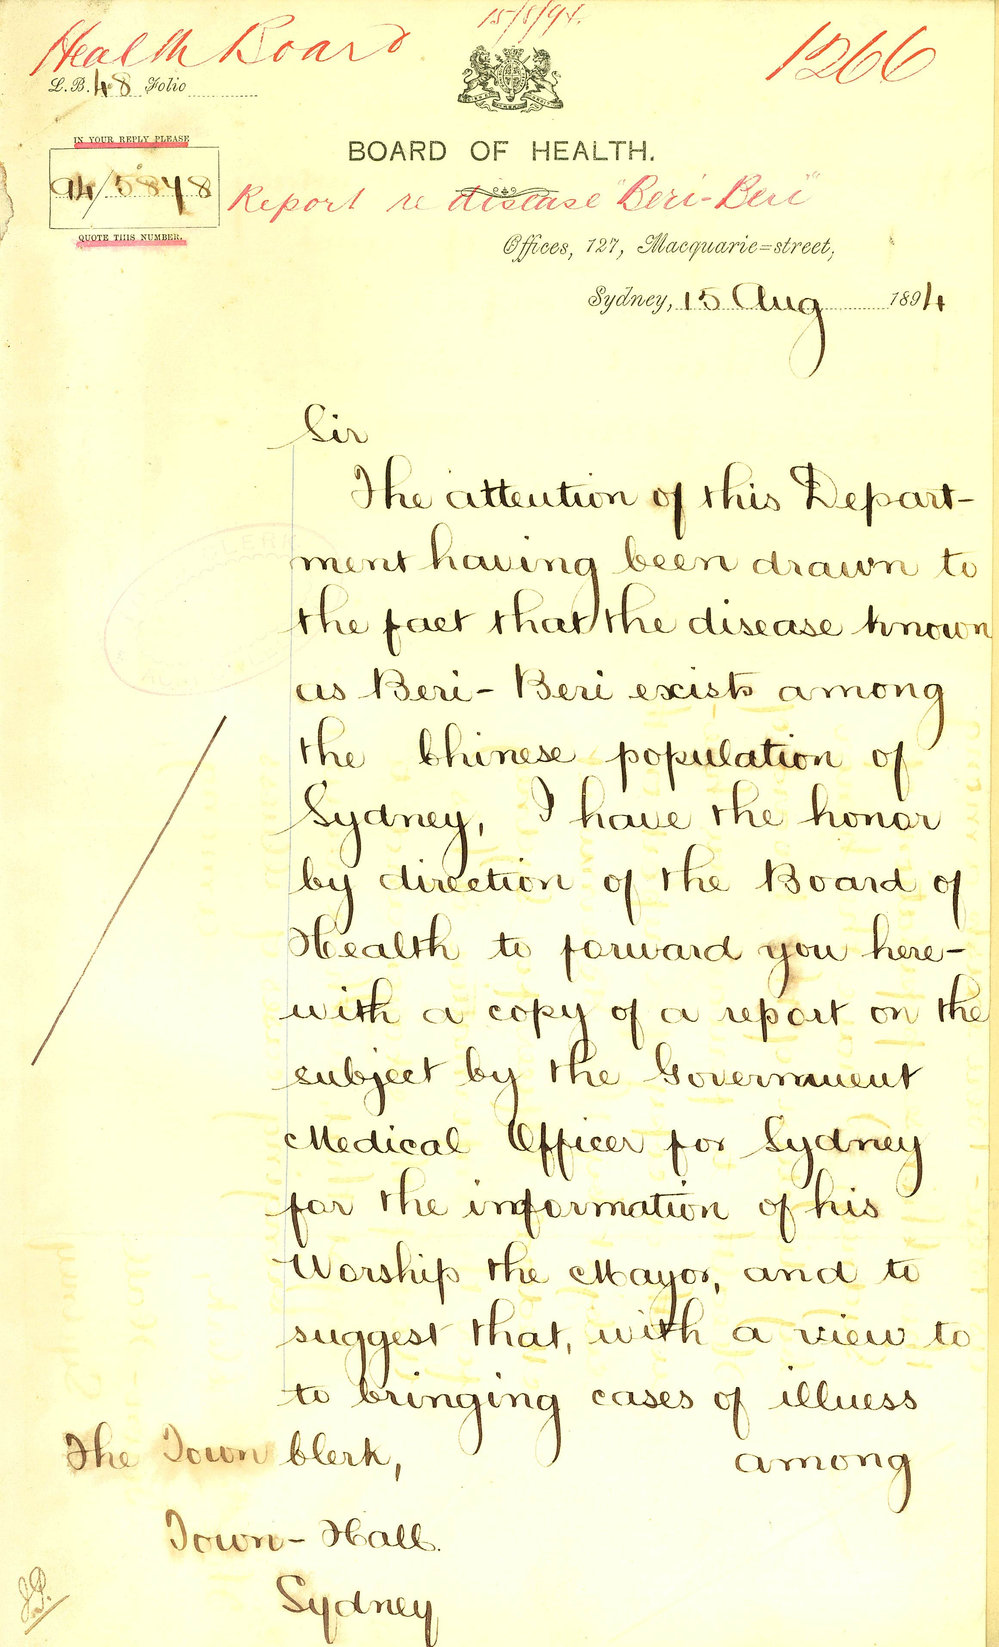 15/8/94.
Health Board
1266
L.B. 48 Folio
IN YOUR REPLY PLEASE
94/5848
QUOTE THIS NUMBER.
BOARD OF HEALTH.
Report re disease "Beri-Beri"
Offices, 127, Macquarie=street,
Sydney, 15 Aug 1894
Sir
The attention of this Depart-
ment having been drawn to
the fact that the disease known
as Beri-Beri exists among
the Chinese population of
Sydney, I have the honor
by direction of the Board of
Health to forward you here-
with a copy of a report on the
subject by the Government
Medical Officer for Sydney
for the information of his
Worship the Mayor, and to
suggest that, with a view to
to bringing cases of illness
among
The Town Clerk,
Town-Hall.
Sydney